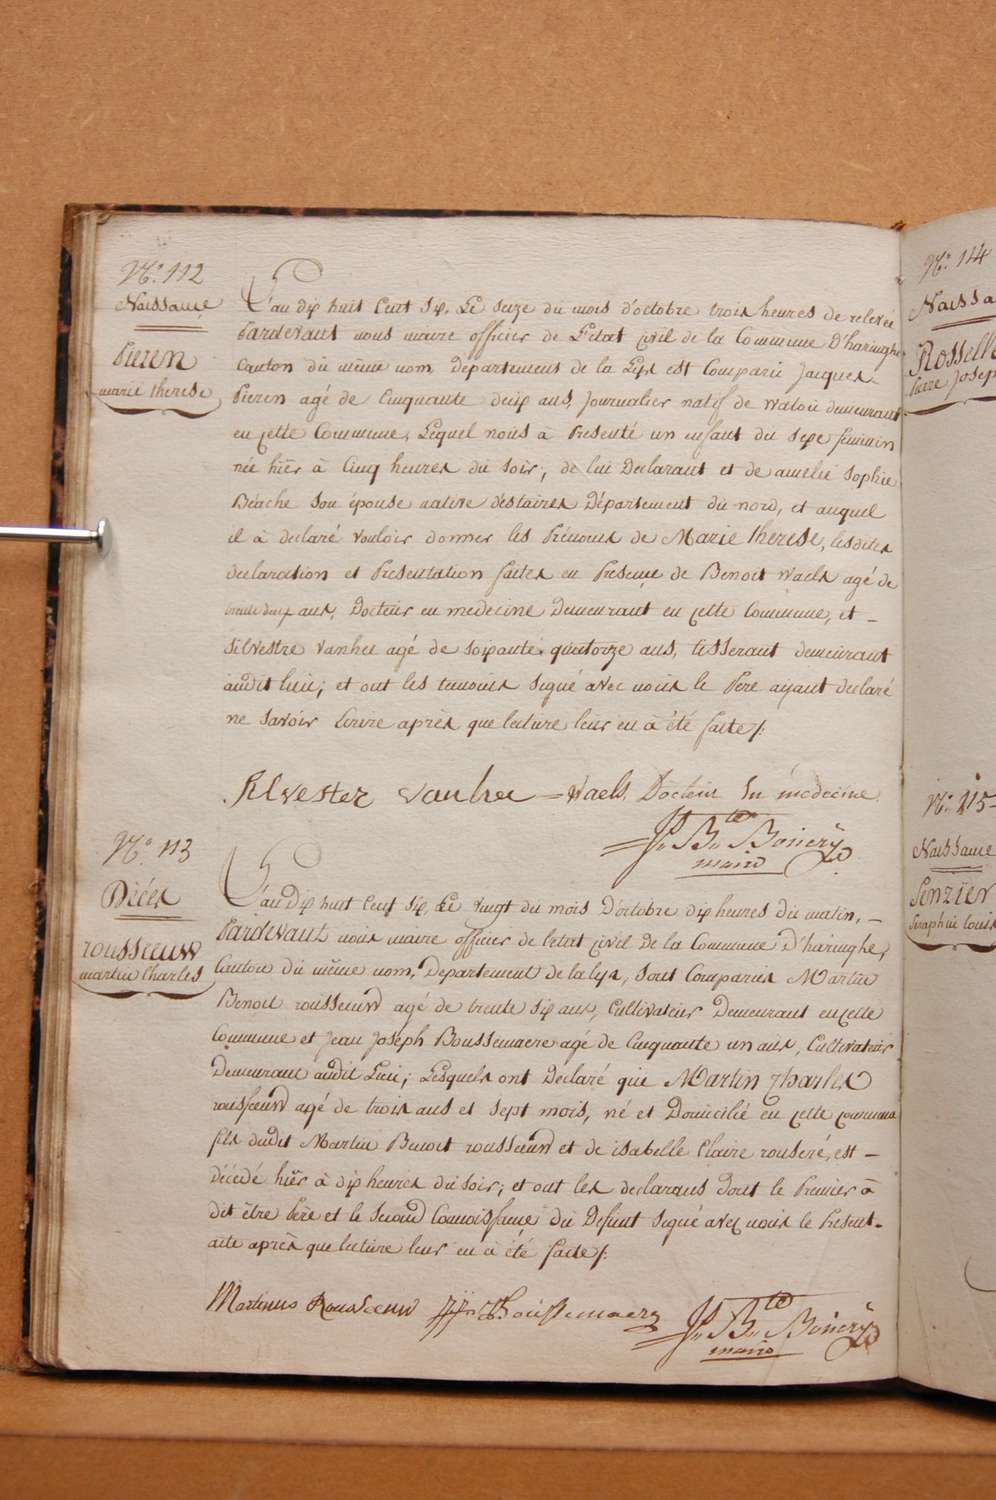 N.° 112
Naissance
Pieren
marie therese
L'an dix huit Cent Six, Le Seize du mois d'octobre trois heures de relevée
Pardevant nous maire officier de L'etat civil de la Commune d'haringhe
Canton du même nom Departement de la Lys est Comparu Jacques
Pieren agé de Cinquante deux ans, Journalier natif de Watou demeurant
en cette Commune, Lequel nous à Presenté un enfant du sexe feminin
née hiër à Cinq heures du Soir, de lui Declarant et de amelie Sophie
Béache Son épouse native d'éstaires Département du nord, et auquel
il à declaré vouloir donner les Prénoms de Marie therese, lesdites
declaration et Presentation faites en Presence de Benoit Waels agé de
trente deux ans, Docteur en medecine Demeurant en cette Commune, et –
Silvestre vanhee agé de Soixante quatorze ans, tisserant demeurant
audit lieu; et ont les temoins signé avec nous le Pere ayant declaré
ne savoir Ecrire après que lecture leur en à été faite/.
Silvester vanhee – Waels, Docteur En médecine
J. B.te Bonery
maire
N.° 113
Décés
rousseeuw
martin Charles
L'an dix huit Cent Six, Le vingt du mois D'octobre dix heures du matin, –
Pardevant nous maire officier de l'etat civil de la Commune D'haringhe,
Canton du même nom, Departement de la lys, Sont Comparus Martin
Benoit rousseeuw agé de trente Six ans, Cultivateur Demeurant en cette
Commune et Jean Joseph Boussemaere agé de Cinquante un ans, Cultivateur
Demeurant audit Lieu; Lesquels ont Declaré que Martin Charles
rousseeuw agé de trois ans et Sept mois, né et Domicilié en cette commune
fils dudit Martin Benoit rousseeuw et de isabelle Claire rouseré, est –
décédé hiër à dix heures du soir; et ont les declarans dont le Premier à
dit être Père et le Second Connoissance du Defunt signé avec nous le Présent
acte après que lecture leur en à été faite/.
Martinus Rousseeuw
Boussemaere
J. B.te Bonery
maire
N.° 114
Naissa
Rosselle
Pierre Josep
N.° 115
Naissance
Senzier
Seraphin Louis